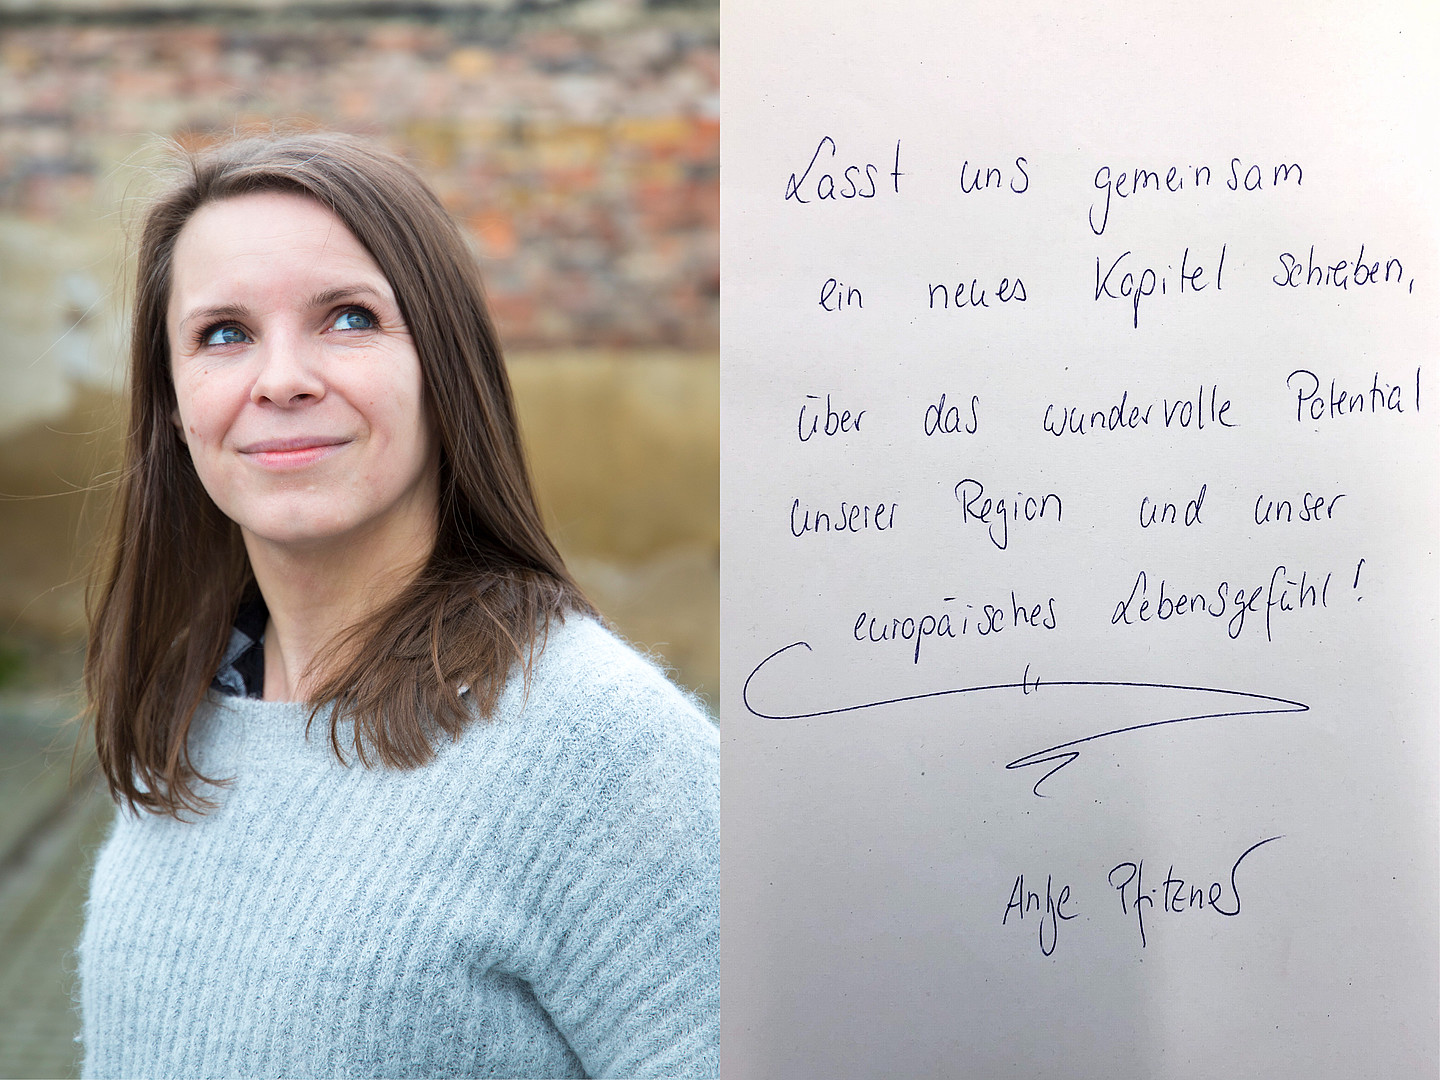 Lasst uns gemeinsam
ein neues Kapitel schreiben,
über das wundervolle Potential
unserer Region und unser
europäisches Lebensgefühl!
Antje Pfitzner